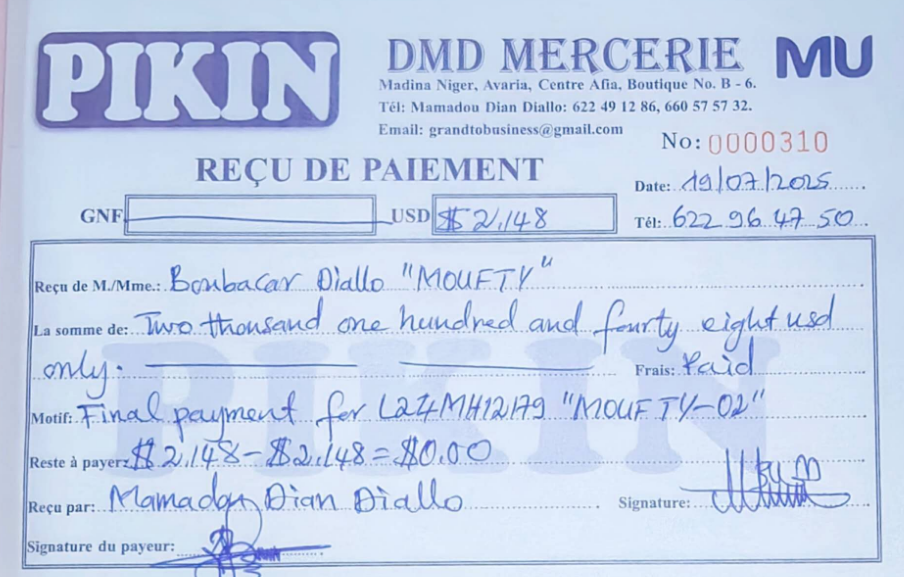 PIKIN
DMD MERCERIE MU
Madina Niger, Avaria, Centre Afia, Boutique No. B - 6.
Tél: Mamadou Dian Diallo: 622 49 12 86, 660 57 57 32.
Email: grandtobusiness@gmail.com
No: 0000310
REÇU DE PAIEMENT
Date: 19/07/2025
GNF USD $ 2,148
Tél: 622 96 47 50
Reçu de M./Mme.: Boubacar Diallo "MOUFTY"
La somme de: Two thousand one hundred and fourty eight usd
only. Frais: Paid
Motif: Final payment for L24MH12179 "MOUFTY-02"
Reste à payer: $2,148-$2,148=$0.00
Reçu par: Mamadou Dian Diallo Signature:
Signature du payeur:
PIKIN